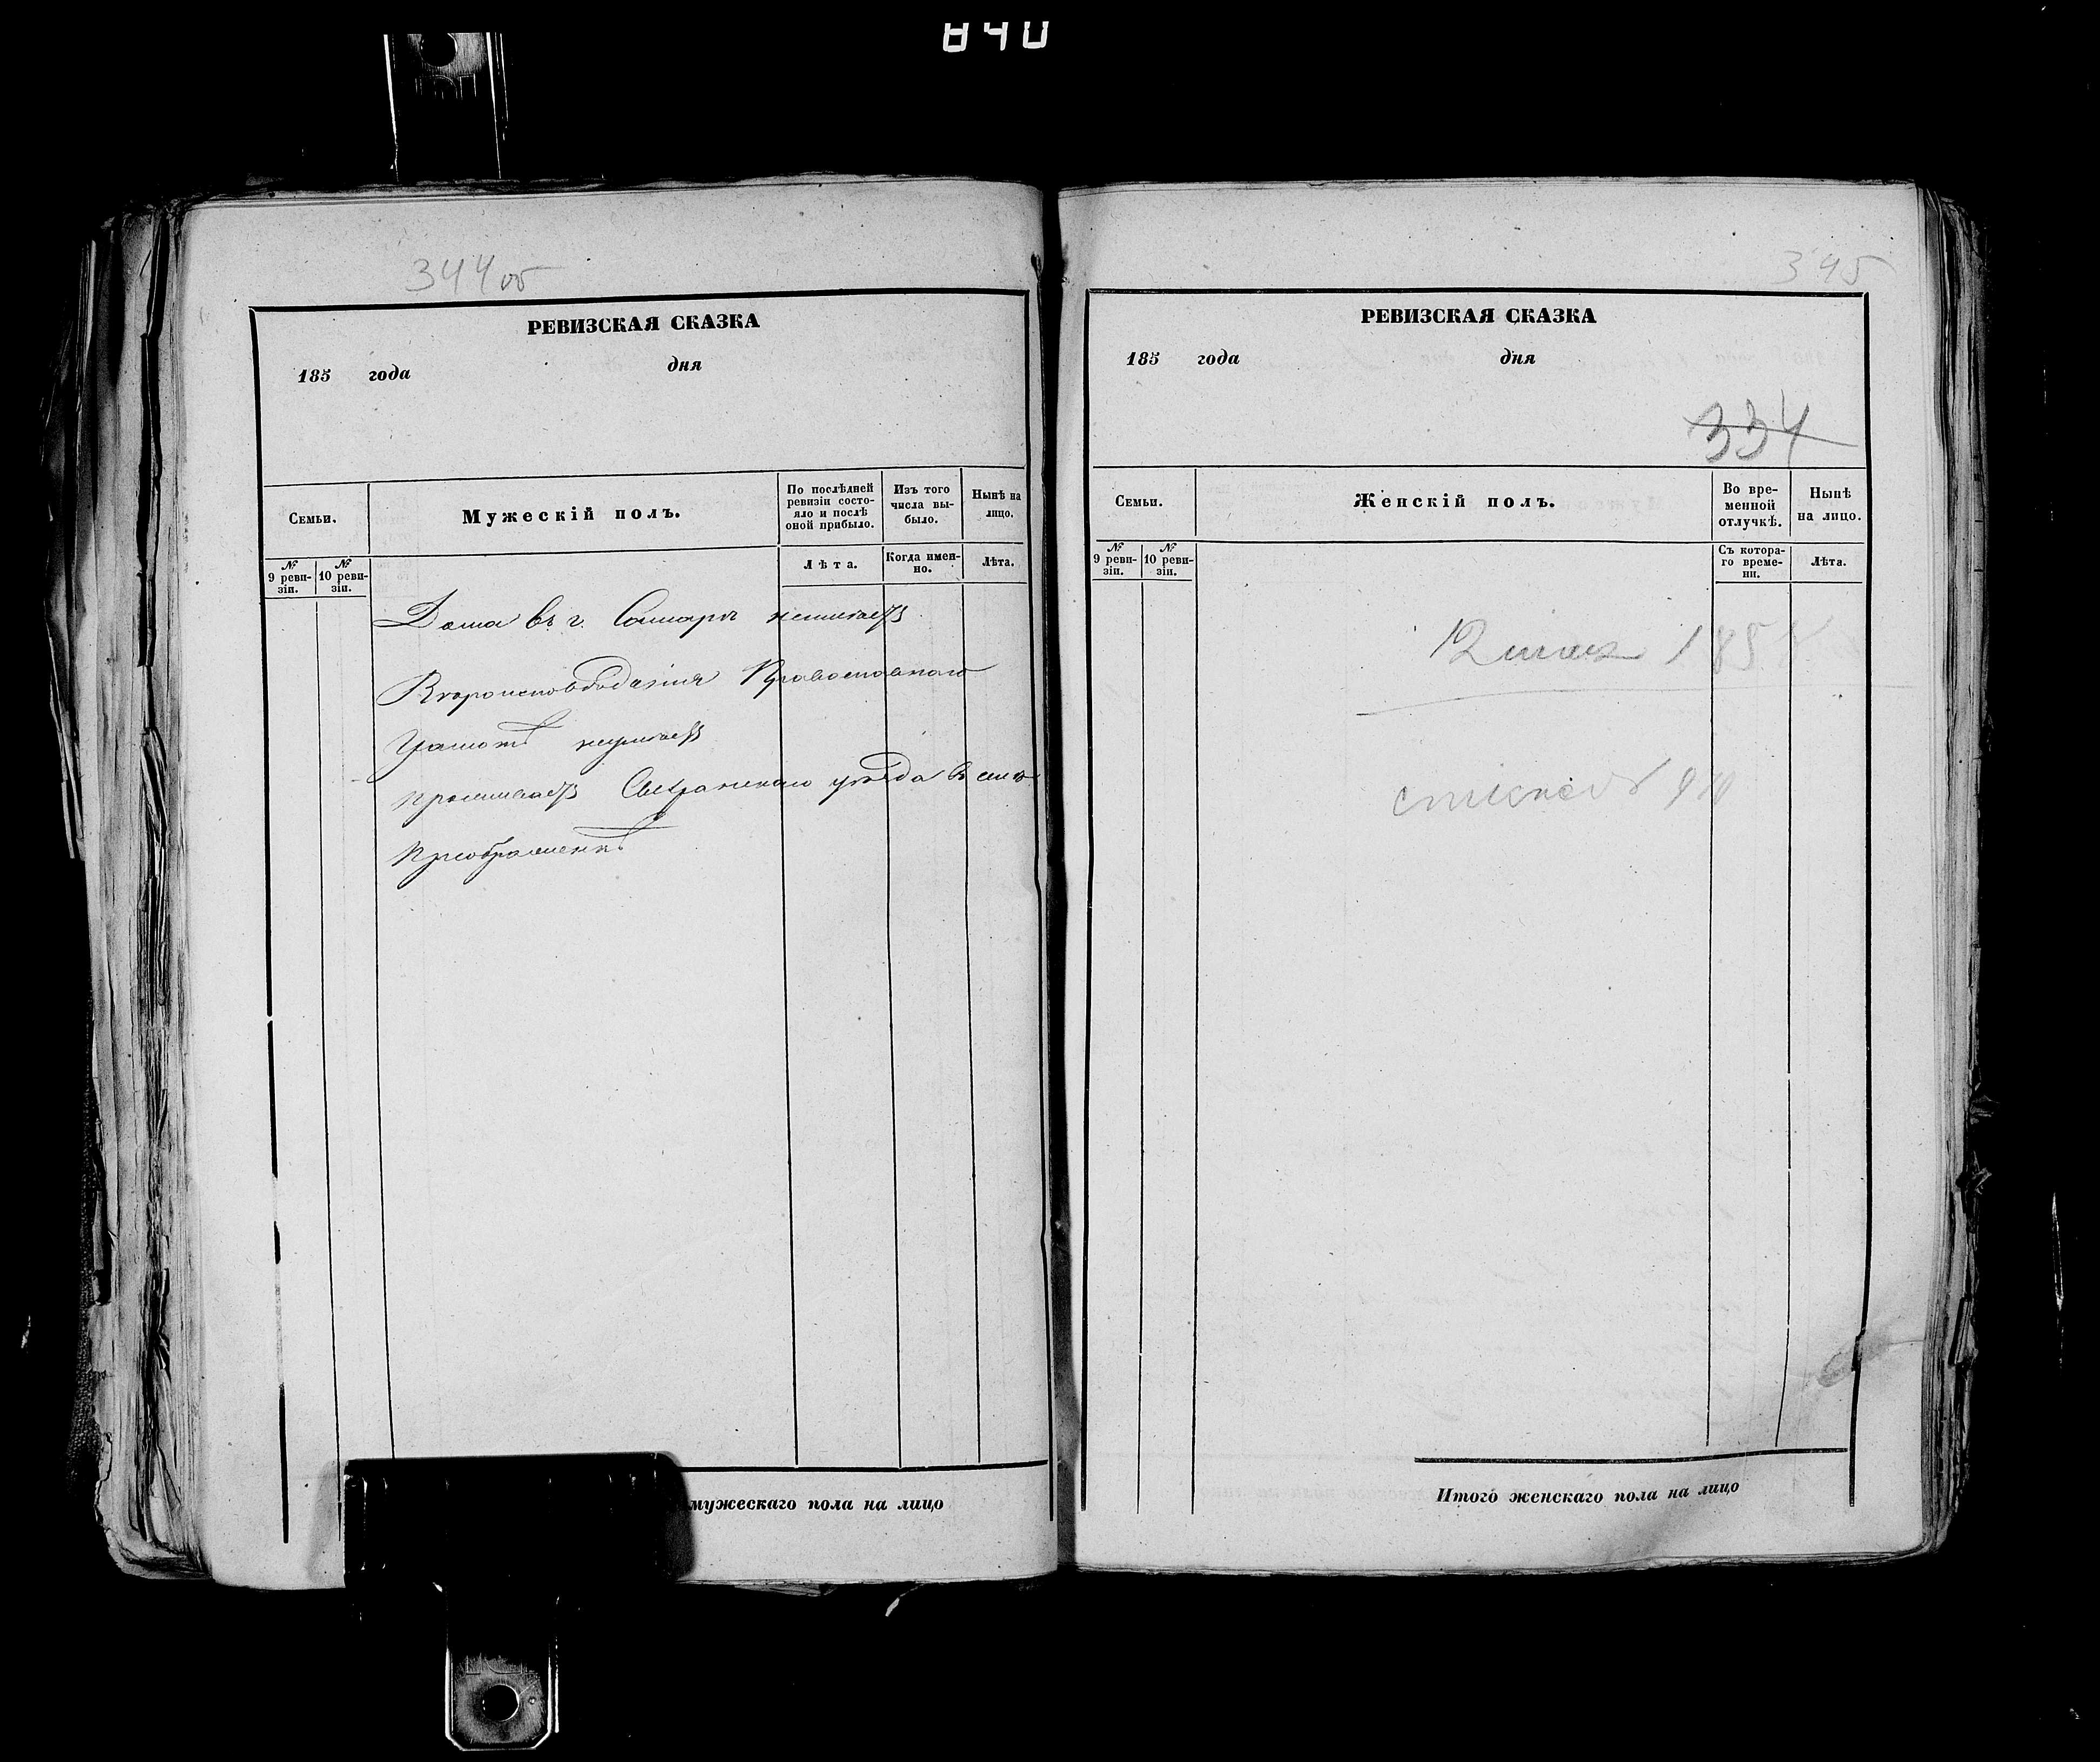 840
344 об
РЕВИЗСКАЯ СКАЗКА
185 года дня
Семьи.
Мужескій полъ.
По послѣдней ревизіи состо-
яло и послѣ оной прибыло.
Изъ того числа вы-
было.
Нынѣ на лицо.
№ 9 реви-
зіи.
№ 10 реви-
зіи.
Лѣта.
Когда имен-
но.
Лѣта.
Дома въ г. Самарѣ неимѣетъ
Вѣроисповѣданія Православнаго
Грамотѣ неумѣетъ
проживаетъ Сызранскаго уѣзда в селѣ
Преображенкѣ
мужескаго пола на лицо
345
РЕВИЗСКАЯ СКАЗКА
185 года дня
334
Семьи.
Женскій полъ.
Во вре-
менной отлучкѣ.
Нынѣ на лицо.
№ 9 реви-
зіи.
№ 10 реви-
зіи.
Съ котора-
го време-
ни.
Лѣта.
1858
Итого женскаго пола на лицо